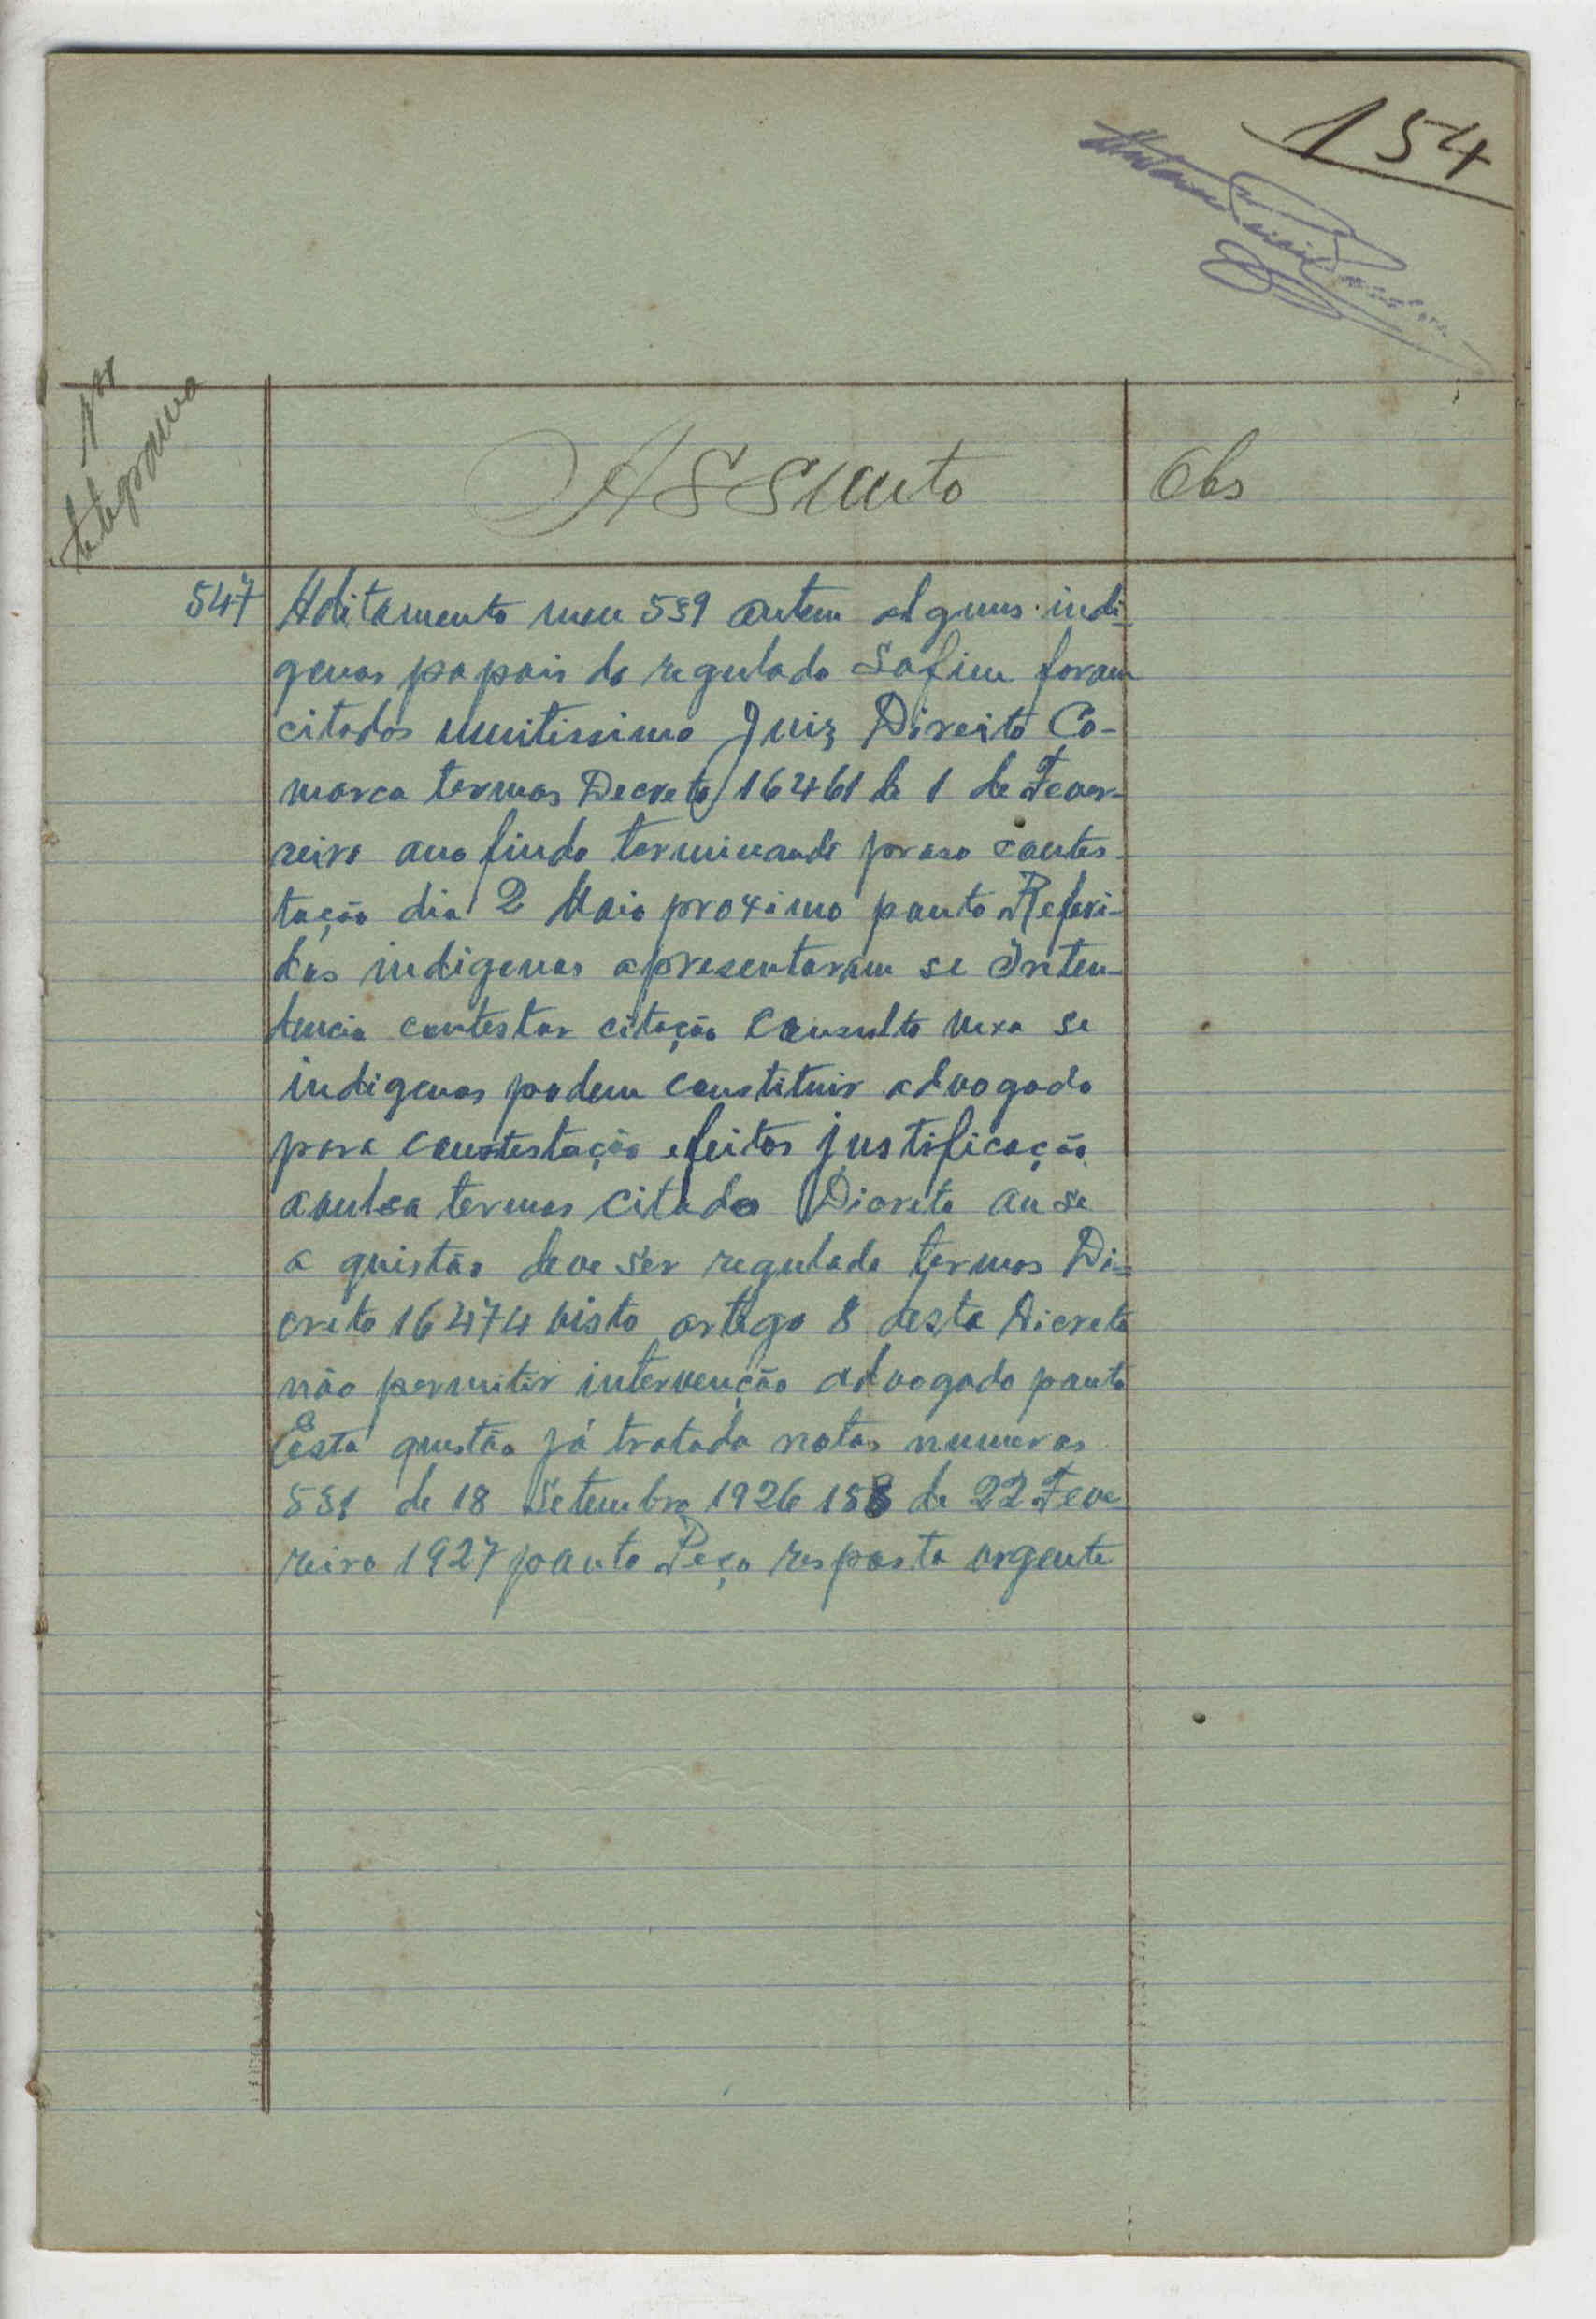 154
por
telegrama
Assunto
Obs
547
Aditamento meu 539 ontem alguns indi-
genas papais do regulado Safim foram
citados muitissimo Juiz Direito Co-
marca termos Decreto 16461 de 1 de Fever-
reiro ano findo terminando praso contes-
tação dia 2 Maio proximo ponto Referi-
dos indigenas apresentaram se Inten-
dencia contestar citação Consulto vexa se
indigenas podem constituir advogado
para constestação efeitos justificação
avulsa termos citado Dicreto ou se
a quistão deve ser regulada termos Di=
creto 16474 visto artigo 8 deste Dicreto
não permitir intervenção advogado ponto
Esta questão já tratada notas numeros
531 de 18 Setembro 1926 158 de 22 Feve
reiro 1927 ponto Peço resposta urgente